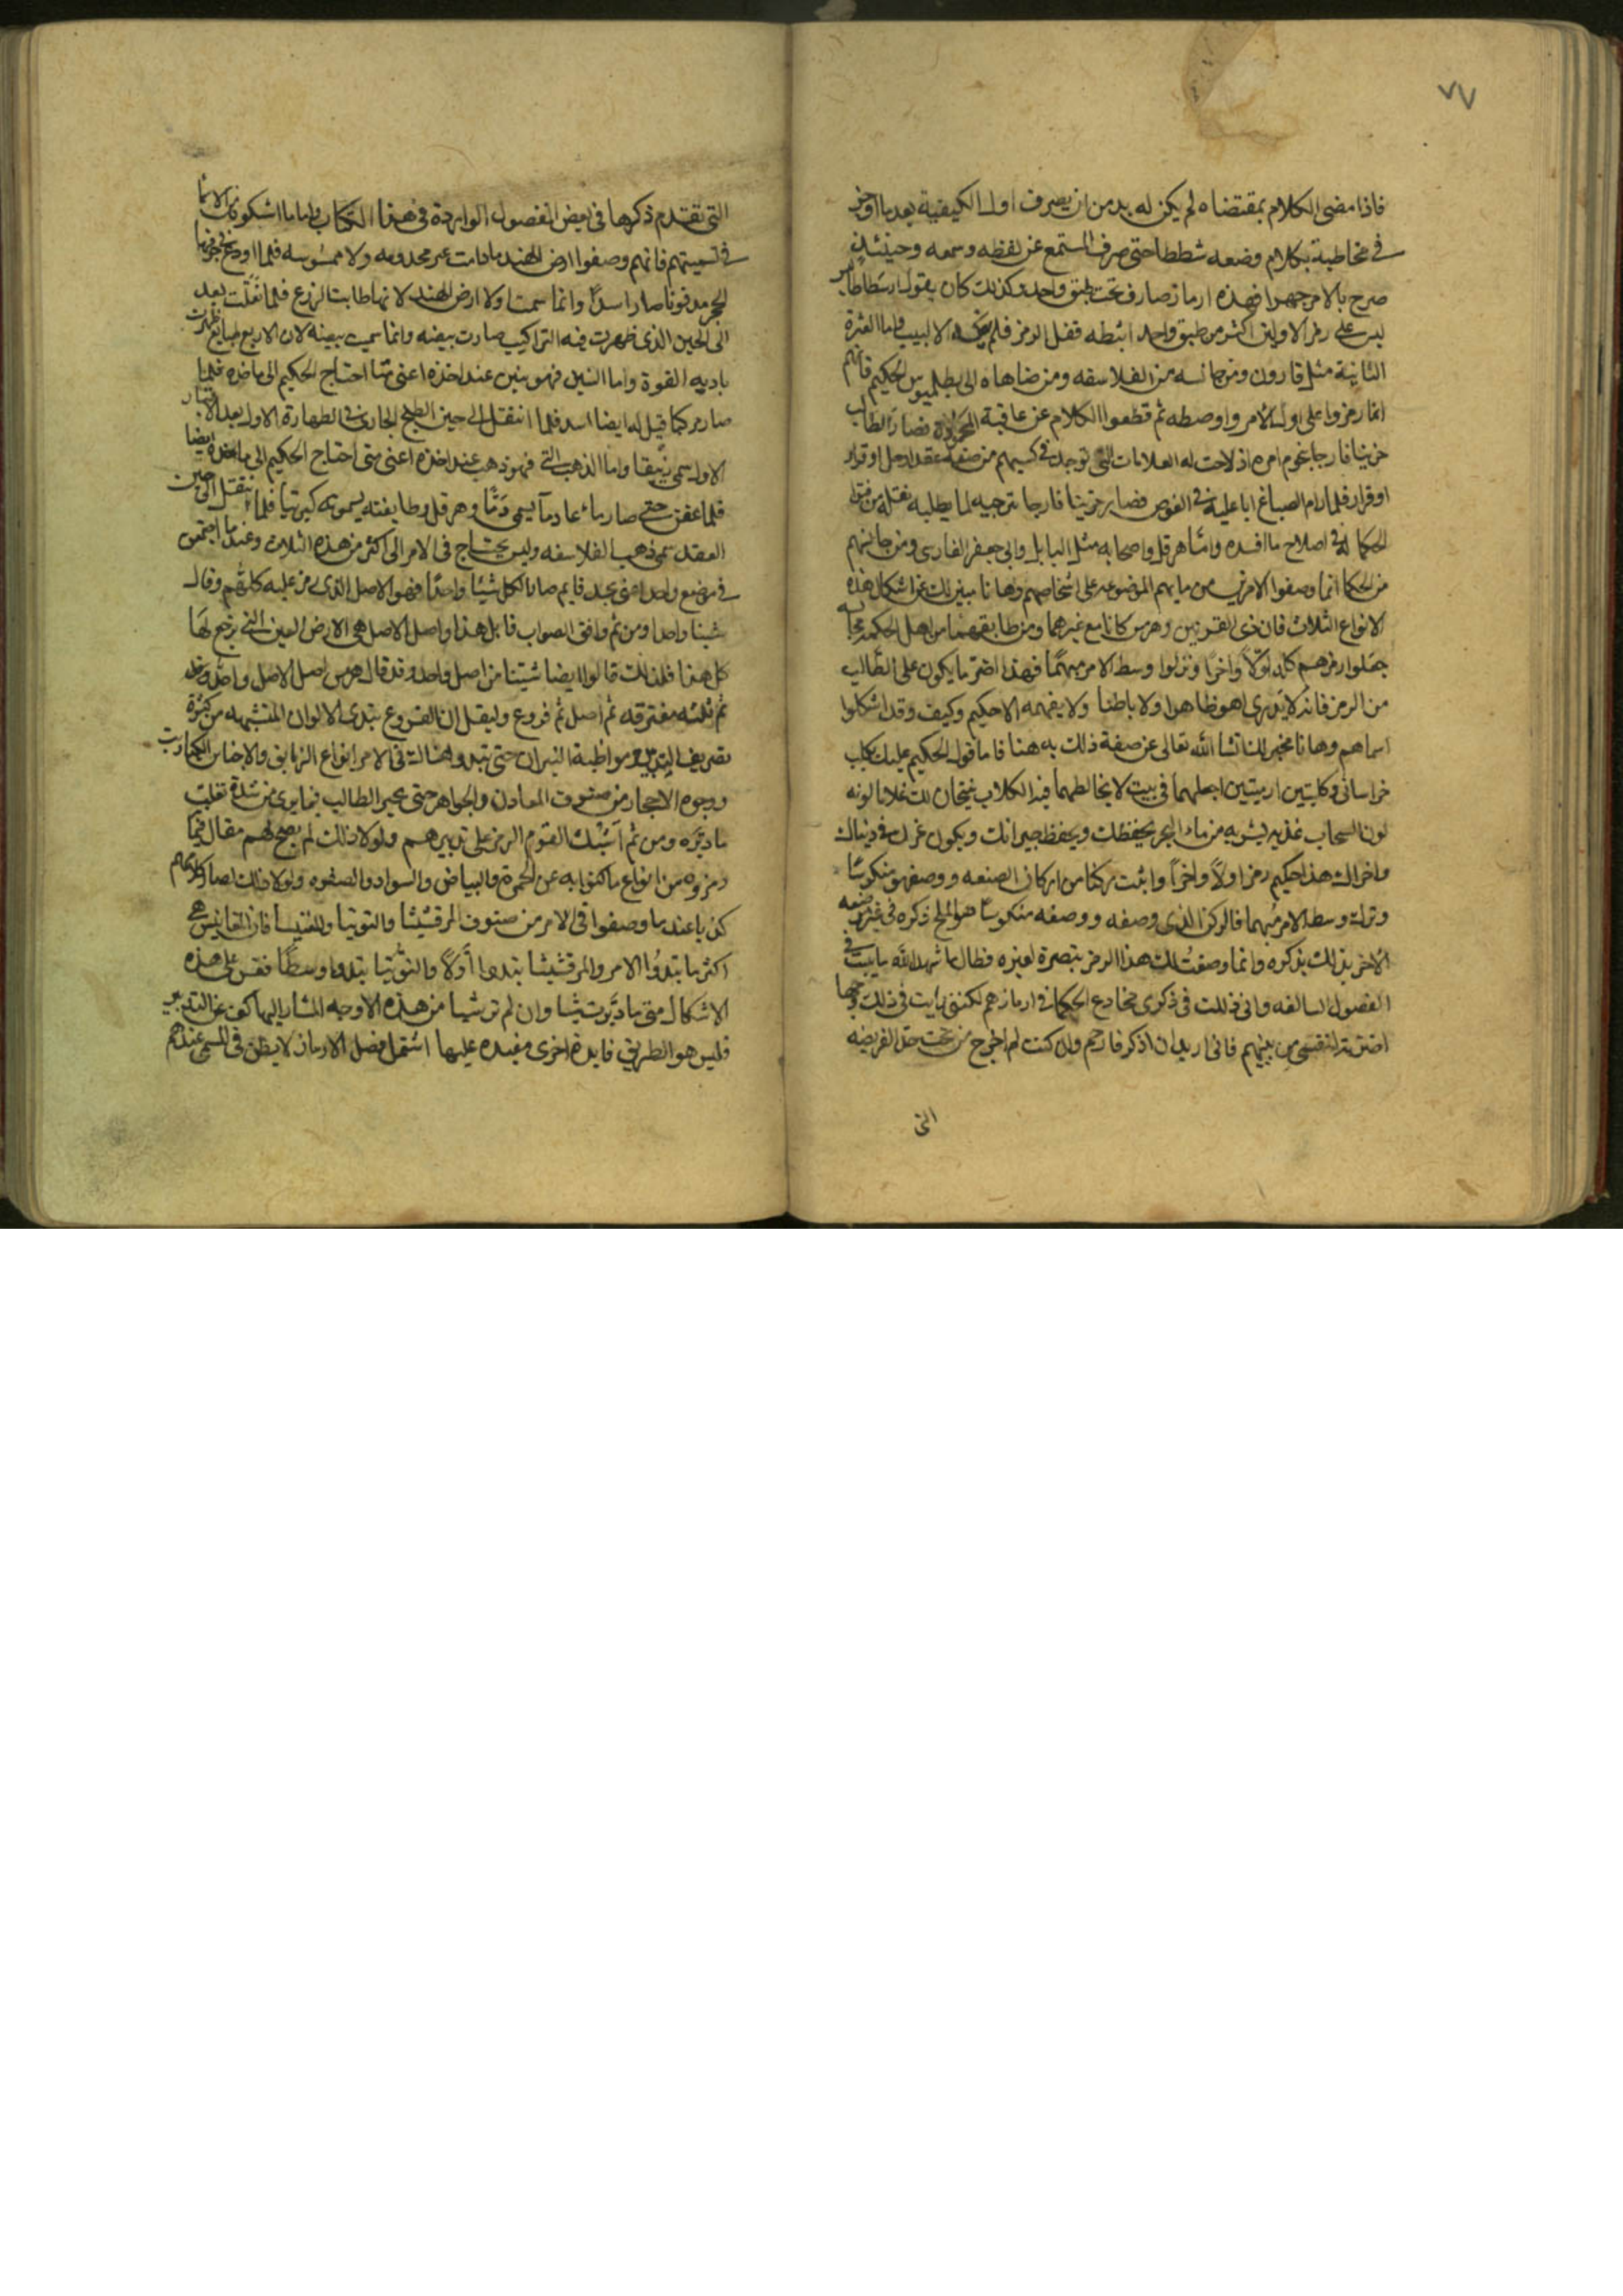 ٧٧
فاذا مضى الكلام بمقتضاه لم يكن له بد من ان يصرف اول الكيفية بعد ما اوضح
في مخاطبة بكلام وضعه شططا حتى صرف المستمع عن لفظه وسمعه وحينئذ
صرح بالامر جهرا فهذه ارماز صارف تحت طبق واحد وكذلك كان يقول ارسطاطاليس
على رمز الاولين اكثر من طبق واحد فلم الا لبيب واما
الثانية مثل قارون ومن جانسه من الفلاسفه ومن ضاهاه الى بطلميوس الحكيم فانهم
انما رمزوا على اول الامر واوسطه ثم قطعوا الكلام عن عاقبة فصار الطالب
حزينا فارجا امره اذ لاحت له العلامات التي توجد في من عقد
فلما رام الصباغ في الغوص فصار حزينا فارجا لما يطلبه
الحكما له في اصلاح ما افسده واما هرقل واصحابه مثل البابلي وابي جعفر الفارسي ومن جانسهم
من الحكما انما وصفوا الامر على اشخاصهم وها نا مبين لك عن اشكال هذه
الانواع الثلاث فان ذي القرنين وهرمس كانا مع غيرهما ومن طابقهما من اهل الحكمه
جعلوا رمزهم كله اولا واخرا وتركوا وسط الامر مبهما فهذا اضر ما يكون على الطالب
من الرمز فانه لا يدرى اهو ظاهرا ولا باطنا ولا يفهمه الا حكيم وكيف وقد اشكلوا
اسماهم وها نا مخبر لك انشا الله تعالى عن صفة ذلك به هنا فاما قول الحكيم عليك بكلب
خراساني وكلبتين ارمينتين اجعلهما في بيت لا يخالطهما فيه الكلاب ينتجان لك غلاما لونه
لون السحاب غذيه بشربه من ماء البحر يحفظك ويحفظ جيرانك ويكون عزك في دنياك
واخراك هذا حكيم رمز اولا واخرا واثبت ركنا من اركان الصنعه ووصفهن منكوسا
وترك وسط الامر مبهما فالركن الذي وصفه ووصفه منكوسا هو الملح ذكره في غير موضعه
الاخر بذلك بذكره وانما وصفت لك هذا الرمز تبصرة لغيره فطال ما شهد الله ما بينت في
الفصول السالفه واني في ذلك في ذكري مخادع الحكما في ارمازهم لكنني رايت في ذلك وجها
نفسي من بينهم فاني اريد ان اذكر فارحم وان كنت لم اخرج من تحت حق الفريضه
التي
التي تقدم ذكرها في بعض الفصول الواردة في هذا الكتاب واما ما اشكلوه الاسما
في تسميتهم فانهم وصفوا ارض الهند ما دامت غير مخدومه ولا ممسوسه فلما اودع بجوفها
الحجر مدفونا صار اسدا وانما سميت اولا ارض الهند لانها طابت للزرع فلما نقلت بعد
الى الحين الذي ظهرت فيه التراكيب صارت بيضه وانما سميت بيضه لان الاربع طبايع ظهرت
باديه القوة واما التنين فهو تنين عند اخذه اعني متى احتاج الحكيم الى ماخذه فلما
صار كما قيل له ايضا اسد فلما انتقل الى حين الطبخ الجاري في الطهارة الاول بعد
الاول سمي زيبقا واما الذهب التي فهو ذهب عند اخذه اعني متى احتاج الحكيم الى ماخذه ايضا
فلما عفن حتى صار ماء عاد دما يسمى دما وهرقل وطايفته يسمونه كبريتا فلما انتقل الى حين
العقد سمي ذهب الفلاسفه وليس يحتاج في الامر الى اكثر من هذه الثلاث وعند ما اجتمعن
في موضع واحد صار الكل شيئا واحدا فهو الاصل الذي رمز عليه كلهم وقال
شيئا واحدا ومن ثم وافق الصواب قابل هذا واصل الاصل هي الارض العين التي يرجع لها
كل هذا فلذلك قالوا ايضا شيئا من اصل واحد وقد قال هرمس اصل الاصل واصل واحد
ثم ثلثه مفترقه ثم اصل ثم فروع وليقل ان الفروع تبدي الالوان المتشبهه من كثرة
تصريف التدبير ومواظبة النيران حتى تبدو هنالك في الامر انواع الزيابق والاجناس الكباريت
ووجوه الاحجار من صنوف المعادن والجواهر حتى يحير الطالب فيما يرى من شدة تقلب
ما دبره ومن ثم اثبتت القوم الرمز على تدبيرهم ولولا ذلك لم يصح لهم مقال فيما
رمزوه من انواع ما كنوا به عن الحمرة والبياض والسواد والصفره ولولا ذلك لصار كلامهم
كذبا عند ما وصفوا في الامر من صنوف المرقشيثا والتوتيا والمغنيسا فان المغانيس هي
اكثر ما تبدوا الامر والمرقشيثا تبدوا اولا والتوتيا تبدوا وسطا فقس على هذه
الاشكال متى ما دبرت شيئا وان لم تر شيئا من هذه الاوجه المشار اليها كف عن التدبير
فليس هو الطريق فايدة اخرى مفيده عليها اشتمل فصل الارماز لا يظن في المسمى عندهم